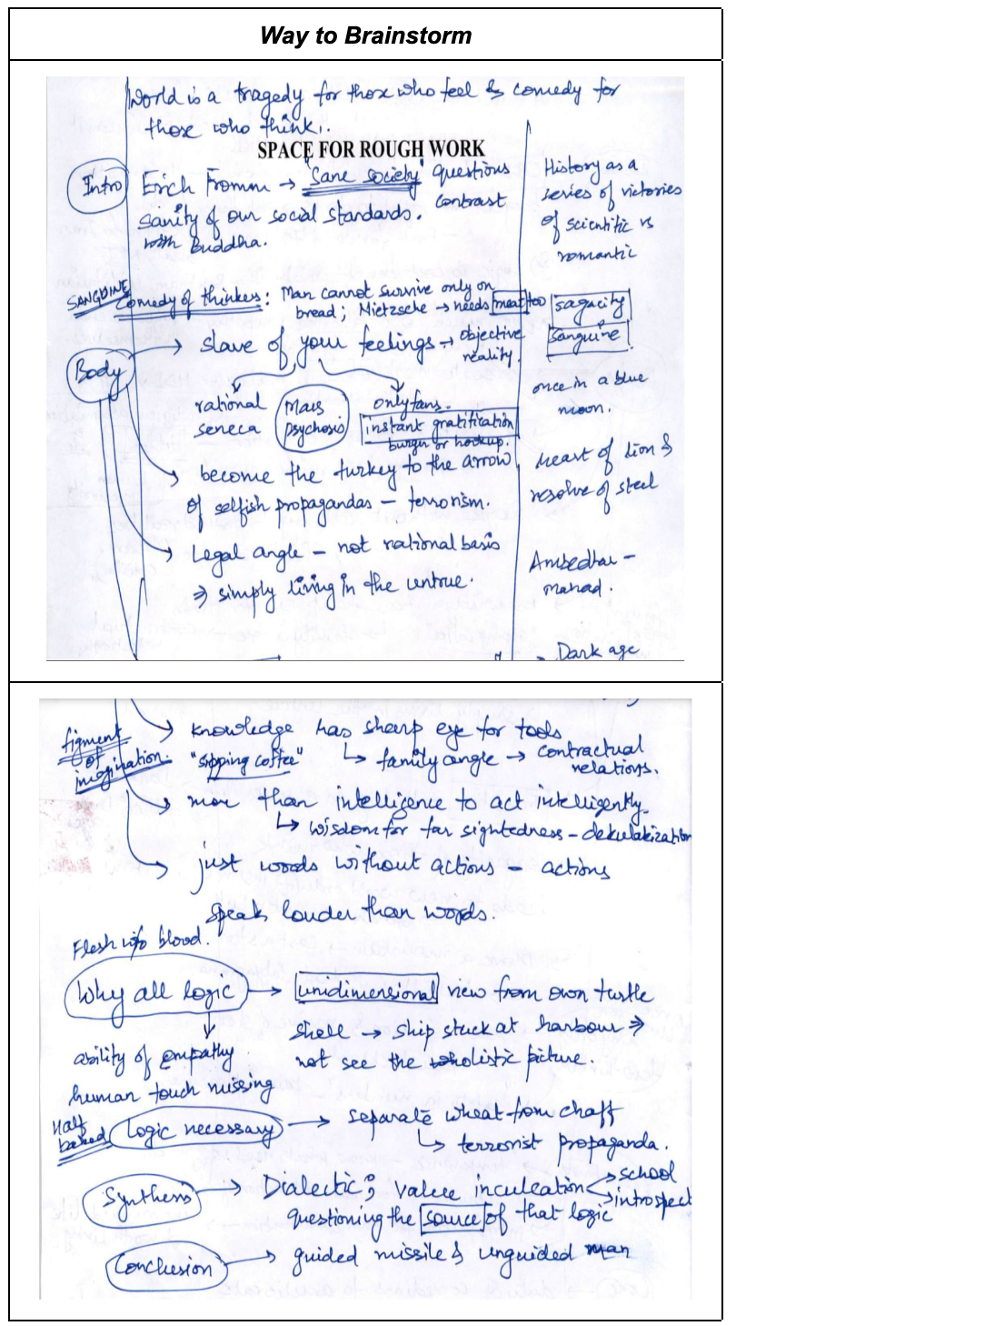 Way to Brainstorm
World is a tragedy for those who feel & comedy for
those who think.
SPACE FOR ROUGH WORK
Intro
Erich Fromm → "Sane society" questions
sanity of our social standards. contrast
with Buddha.
History as a
series of victories
of scientific vs
romantic
SANGUINE
Comedy of thinkers: Man cannot survive only on
bread; Nietzsche → needs meat too
sagacity
sanguine
Body
→ slave of your feelings → objective
reality.
rational
seneca
Mass
psychosis
onlyfans.
instant gratification
burger or hookup.
once in a blue
moon.
→ become the turkey to the arrow
of selfish propagandas – terrorism.
heart of lion &
resolve of steel
→ Legal angle – not rational basis
⇒ simply living in the centrue.
Ambedkar –
mahad.
Dark age
figment
of
imagination
→ knowledge has sharp eye for tools
"sipping coffee"
↳ family angle → contractual
relations.
→ more than intelligence to act intelligently
↳ wisdom for far sightedness – dekulakization
→ just words without actions – actions
speak louder than words.
Flesh w/o blood.
Why all logic → unidimensional view from own turtle
shell → ship stuck at harbour ⇒
not see the holistic picture.
ability of empathy
human touch missing
Half
baked
Logic necessary → separate wheat from chaff
↳ terrorist propaganda.
Synthesis → Dialectic; value inculcation → school
→ introspect
questioning the source of that logic
Conclusion → guided missile & unguided man